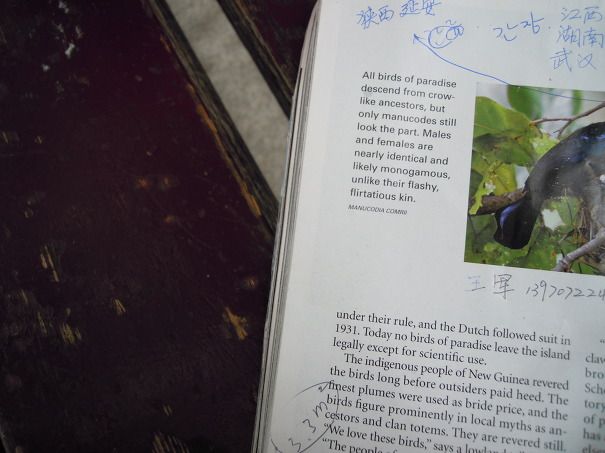 陕西 延安
江西
湖南
武汉
All birds of paradise
descend from crow-
like ancestors, but
only manucodes still
look the part. Males
and females are
nearly identical and
likely monogamous,
unlike their flashy,
flirtatious kin.
MANUCODIA COMRII
王军 1397072224
under their rule, and the Dutch followed suit in
1931. Today no birds of paradise leave the island
legally except for scientific use.
The indigenous people of New Guinea revered
the birds long before outsiders paid heed. The
finest plumes were used as bride price, and the
birds figure prominently in local myths as an-
cestors and clan totems. They are revered still.
"We love these birds," says a
"The people of
3.3m
"
claw
bro
Sch
tory
of p
has